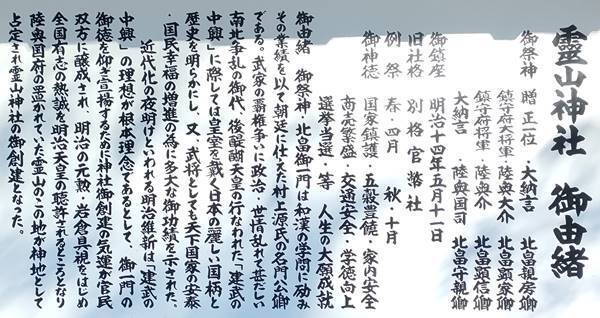 霊山神社 御由緒
御祭神 贈 正一位・大納言 北畠親房卿
鎮守府大将軍・陸奥大介 北畠顕家卿
鎮守府将軍・陸奥介 北畠顕信卿
大納言・陸奥国司 北畠守親卿
御鎮座 明治十四年五月十一日
旧社格 別格官幣社
例祭 春・四月 秋・十月
御神徳 国家鎮護・五穀豊饒・家内安全
商売繁盛・交通安全・学徳向上
選挙当選・等 人生の大願成就
御由緒 御祭神・北畠御一門は和漢の学問に励み
その業績を以て朝廷に仕えた村上源氏の名門公卿
である。武家の覇権争いに政治・世情乱れて甚だしい
南北争乱の御代、後醍醐天皇の行なわれた「建武の
中興」に際しては皇室を戴く日本の麗しい国柄と
歴史を明らかにし、又、武将としても天下国家の安泰
・国民幸福の増進の為に多大な御功績を示された。
近代化の夜明けといわれる明治維新は「建武の
中興」の理想が根本理念であるとして、御一門の
御徳を仰ぎ宣揚するために神社御創建の気運が官民
双方に醸成され、明治の元勲・岩倉具視をはじめ
全国有志の熱誠を明治天皇の聴許されるところとなり
陸奥国府の置かれていた霊山のこの地が神地として
占定され霊山神社の御創建となった。